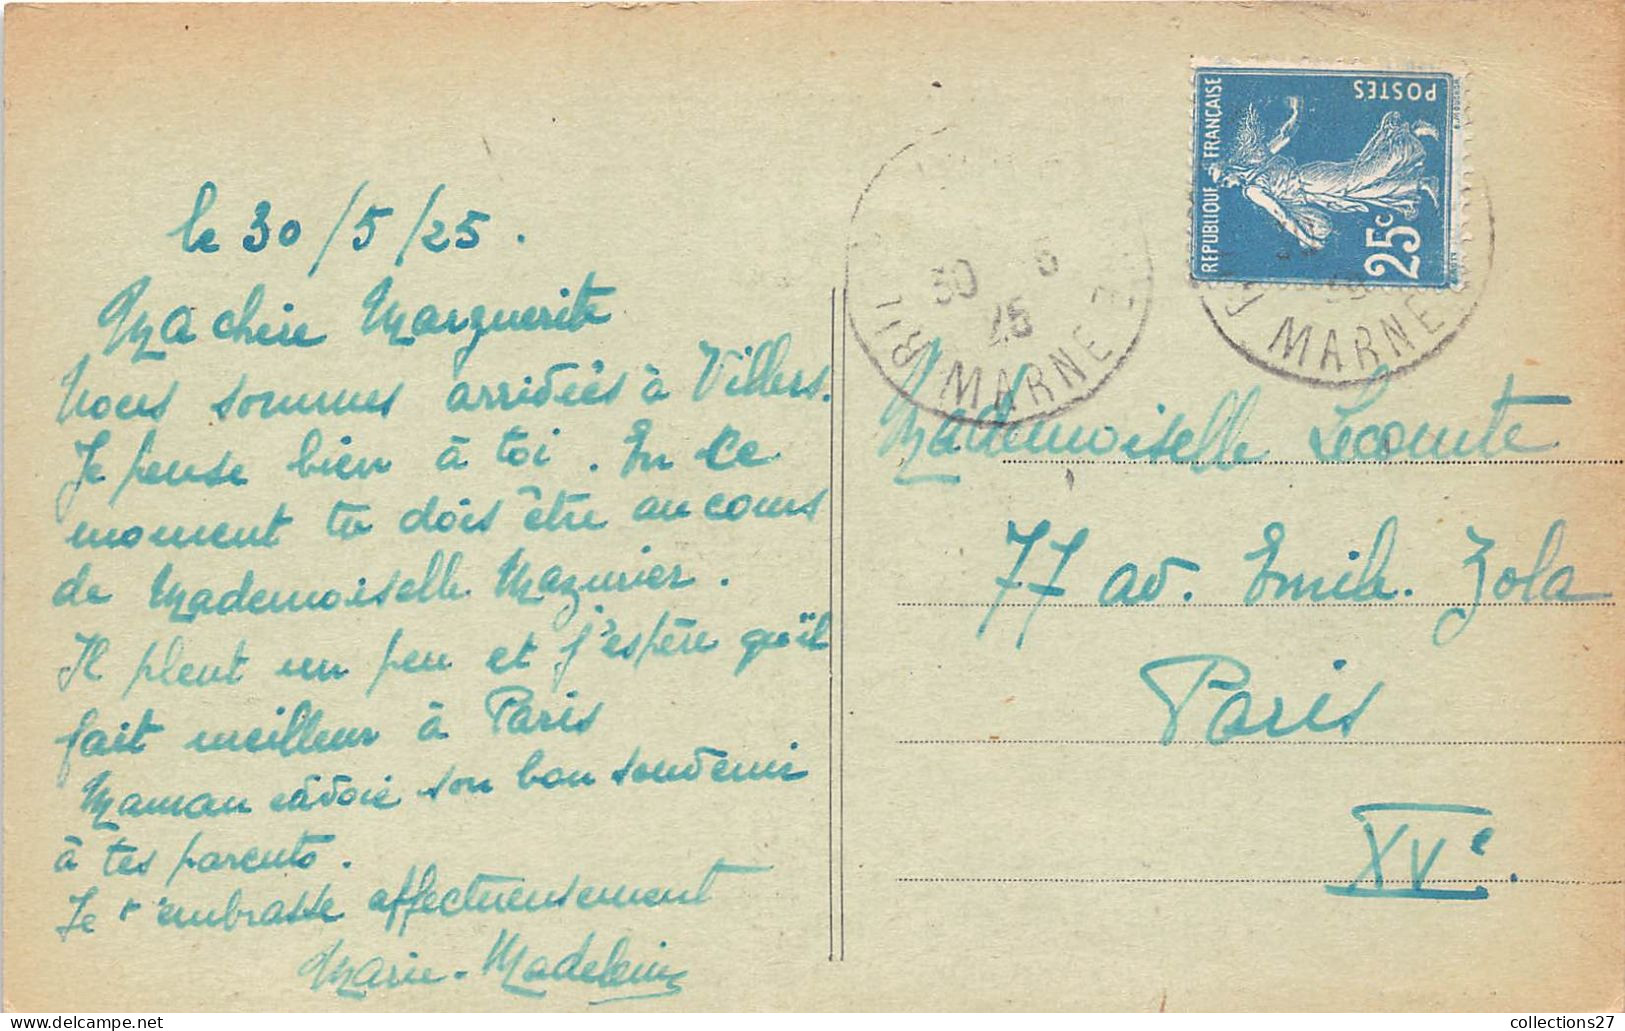 le 30/5/25.
Ma chère Marguerite
Nous sommes arrivées à Villers.
Je pense bien à toi. En ce
moment tu dois être au cours
de Mademoiselle Mazurier.
Il pleut un peu et j'espère qu'il
fait meilleur à Paris
Maman envoie son bon souvenir
à tes parents.
Je t'embrasse affectueusement
Marie-Madeleine
REPUBLIQUE FRANÇAISE
POSTES
25c
30 5
25
MARNE
MARNE
Mademoiselle Lecomte
77 av. Emile Zola
Paris
XVe.
collections27